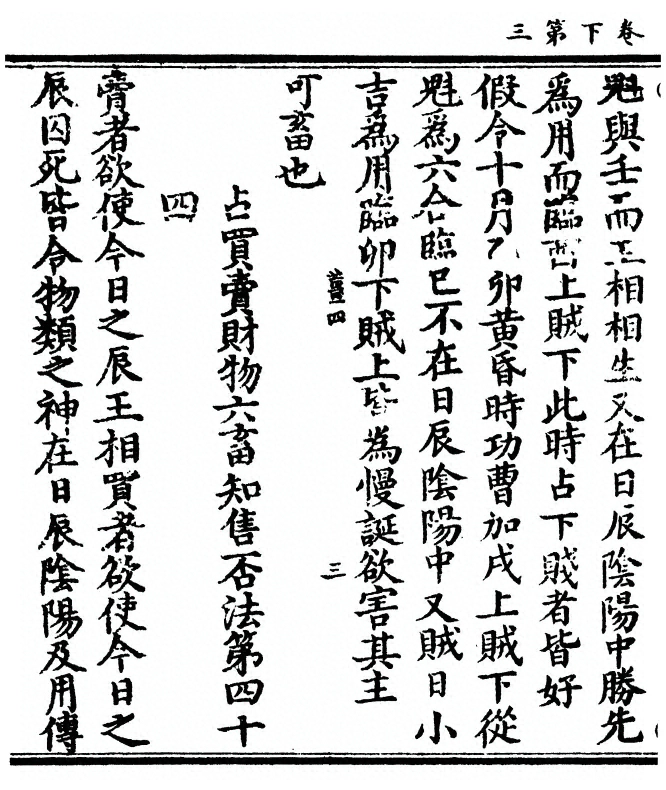 卷下第三
魁與壬而王相相生又在日辰陰陽中勝先
爲用而臨酉上賊下此時占下賤者皆好
假令十月乙卯黃昏時功曹加戌上賊下從
魁爲六合臨巳不在日辰陰陽中又賊日小
吉爲用臨卯下賊上皆為慢誕欲害其主
四
三
可畜也
占買賣財物六畜知售否法第四十
四
賣者欲使今日之辰王相買者欲使今日之
辰囚死皆令物類之神在日辰陰陽及用傳